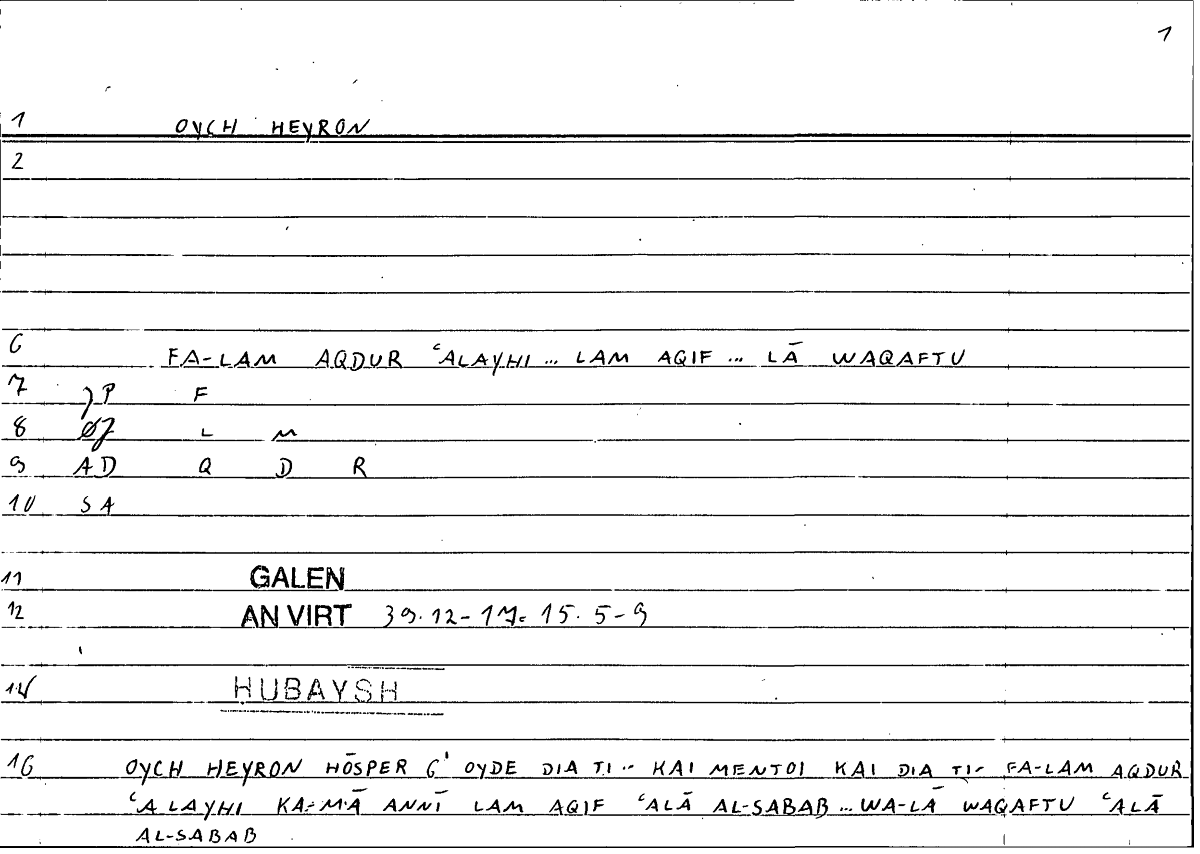 1
1 OYCH HEYRON
2
6 FA-LAM AQDUR ʿALAYHI ... LAM AQIF ... LĀ WAQAFTU
7 P F
8 L M
9 AD Q D R
10 SA
11 GALEN
12 AN VIRT 39.12-17= 15.5-9
14 HUBAYSH
16 OYCH HEYRON HŌSPER G' OYDE DIA TI .. KAI MENTOI KAI DIA TI- FA-LAM AQDUR
ʿALAYHI KA-MĀ ANNĪ LAM AQIF ʿALĀ AL-SABAB ... WA-LĀ WAQAFTU ʿALĀ
AL-SABAB